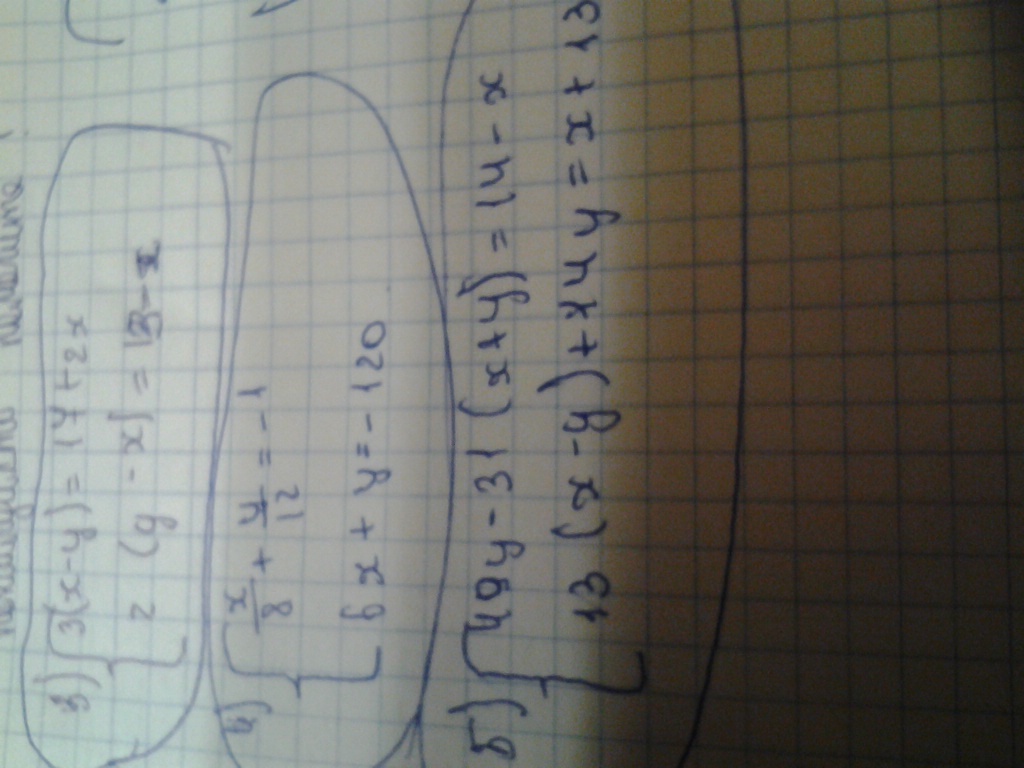 3) { 3(x-y) = 14+2x
2(y-x) = 13-x
4) { x/8 + y/12 = -1
6x + y = -120
5) { 49y - 31(x+y) = 14-x
13(x-y) + 14y = x+13